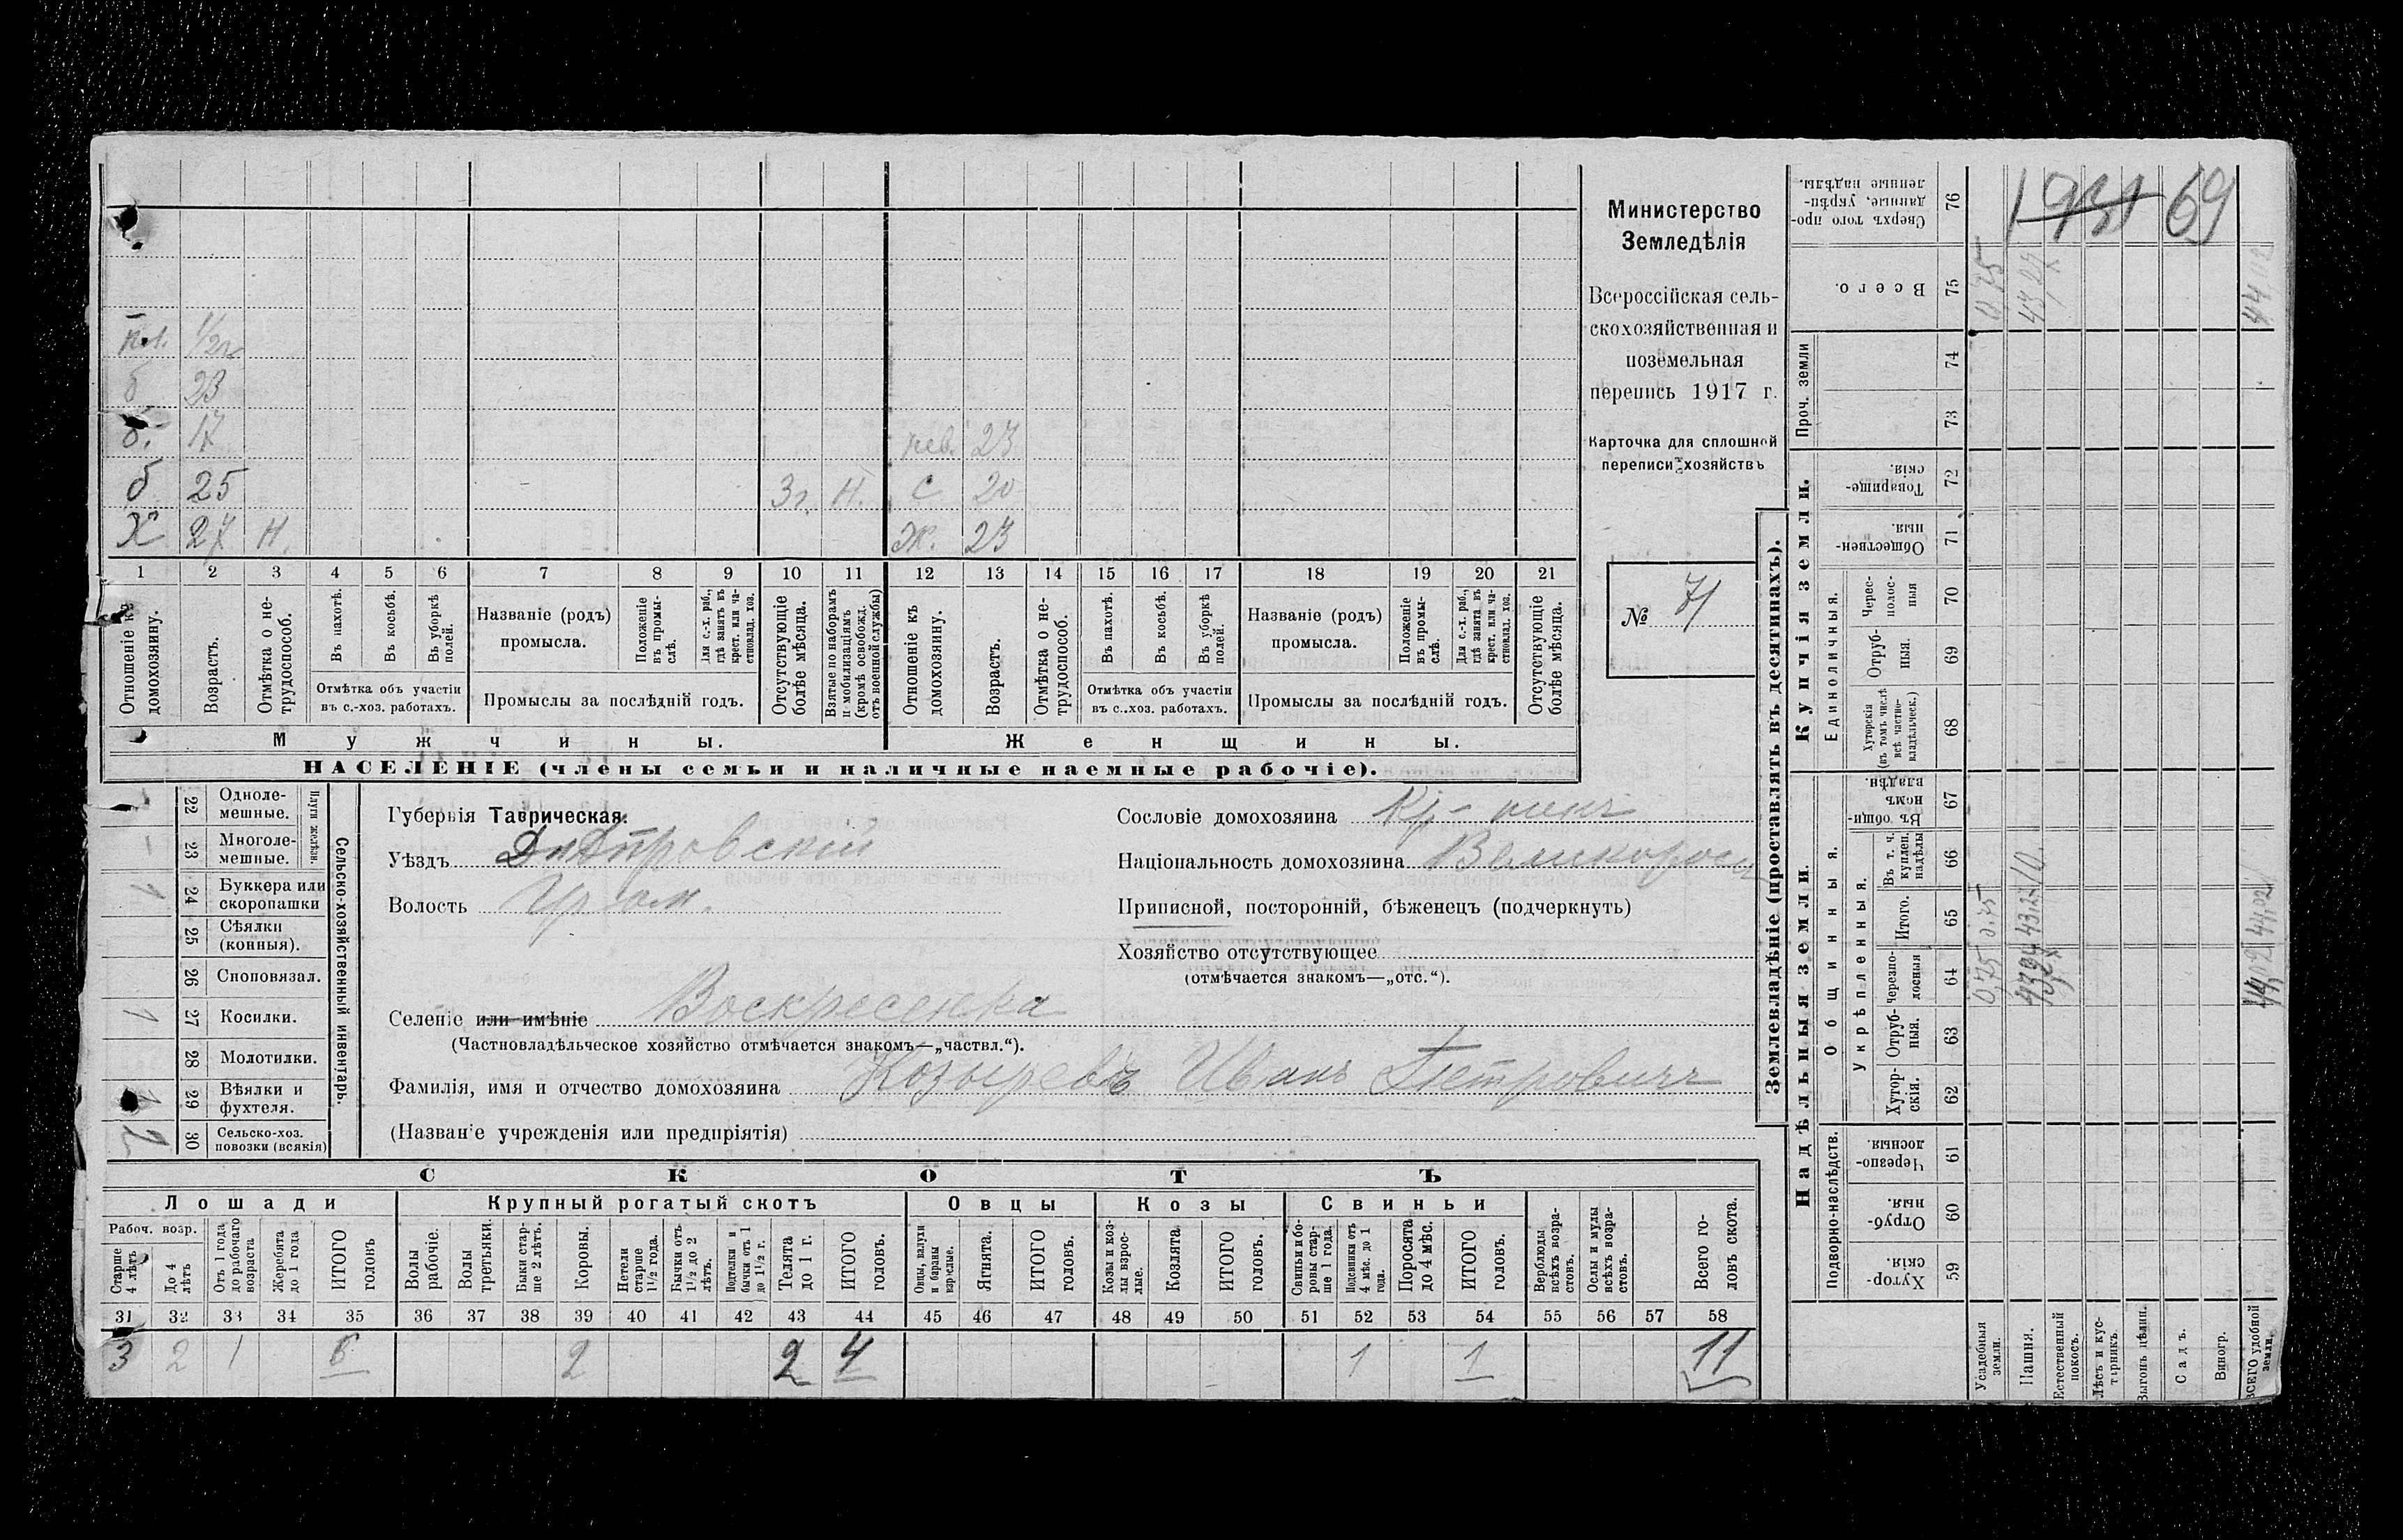 1931 69
Министерство
Земледѣлія
Всероссійская сель-
скохозяйственная и
поземельная
перепись 1917 г.
Карточка для сплошной
переписи хозяйствъ
№ 71
б 23
б. 17
23
б 25 3 г. Н. С 20
Х 27 Н. Ж. 23
1 2 3 4 5 6 7 8 9 10 11 12 13 14 15 16 17 18 19 20 21
Отношеніе къ домохозяину.
Возрастъ.
Отмѣтка о не-трудоспособ.
Въ пахотѣ.
Въ косьбѣ.
Въ уборкѣ полей.
Отмѣтка объ участіи
въ с.-хоз. работахъ.
Названіе (родъ)
промысла.
Положеніе въ промы-слѣ.
Для с.-х. раб., гдѣ занятъ въ крест. или ча-стновлад. хоз.
Промыслы за послѣдній годъ.
Отсутствующіе болѣе мѣсяца.
Взятые по наборамъ и мобилизаціямъ (кромѣ освобожд. отъ военной службы)
Отношеніе къ домохозяину.
Возрастъ.
Отмѣтка о не-трудоспособ.
Въ пахотѣ.
Въ косьбѣ.
Въ уборкѣ полей.
Отмѣтка объ участіи
въ с.-хоз. работахъ.
Названіе (родъ)
промысла.
Положеніе въ промы-слѣ.
Для с.-х. раб., гдѣ занята въ крест. или ча-стновлад. хоз.
Промыслы за послѣдній годъ.
Отсутствующіе болѣе мѣсяца.
Мужчины. Женщины.
НАСЕЛЕНІЕ (члены семьи и наличные наемные рабочіе).
22 Одноле-мешные.
23 Многоле-мешные.
Плуги желѣзн.
24 Буккера или скоропашки 1
25 Сѣялки (конныя).
26 Сноповязал.
27 Косилки. 1
28 Молотилки.
29 Вѣялки и фухтеля.
30 Сельско-хоз. повозки (всякія) 2
Сельско-хозяйственный инвентарь.
Губернія Таврическая.
Уѣздъ Днѣпровскій
Волость
Селеніе или имѣніе Воскресенка
(Частновладѣльческое хозяйство отмѣчается знакомъ—„частвл.“).
Фамилія, имя и отчество домохозяина Козыревъ Иванъ Петровичъ
(Названіе учрежденія или предпріятія)
Сословіе домохозяина
Національность домохозяина Великоросъ
Приписной, посторонній, бѣженецъ (подчеркнуть)
Хозяйство отсутствующее
(отмѣчается знакомъ—„отс.“).
СКОТЪ
Лошади Крупный рогатый скотъ Овцы Козы Свиньи
Рабоч. возр.
Старше 4 лѣтъ
До 4 лѣтъ
Отъ 1 года до рабочаго возраста
Жеребята до 1 года
ИТОГО головъ
Волы рабочіе.
Волы третьяки.
Быки стар-ше 2 лѣтъ.
Коровы.
Нетели старше 1½ года.
Бычки отъ 1½ до 2 лѣтъ.
Подтелки и бычки отъ 1 до 1½ г.
Телята до 1 г.
ИТОГО головъ.
Овцы, валухи и бараны взрослые.
Ягнята.
ИТОГО головъ.
Козы и коз-лы взрос-лые.
Козлята.
ИТОГО головъ.
Свиньи и бо-ровы стар-ше 1 года.
Подсвинки отъ 4 мѣс. до 1 года.
Поросята до 4 мѣс.
ИТОГО головъ.
Верблюды всѣхъ возра-стовъ.
Ослы и мулы всѣхъ возра-стовъ.
Всего го-ловъ скота.
31 32 33 34 35 36 37 38 39 40 41 42 43 44 45 46 47 48 49 50 51 52 53 54 55 56 57 58
3 2 1 6 2 2 4 1 1 11
Землевладѣніе (проставлять въ десятинахъ).
Купчія земли.
Надѣльныя земли.
76 Сверхъ того про-данные, укрѣп-ленные надѣлы.
75 Всего. 0,75 44,02
Проч. земли
74
73
72 Товарище-скія.
71 Обществен-ныя.
Единоличныя.
70 Черес-полос-ныя
69 Отруб-ныя.
68 Хуторскія (въ томъ числѣ всѣ частно-владѣльческ.)
Общинныя.
67 Въ общи-номъ владѣн.
Укрѣпленныя.
66 Въ т. ч. куплен. надѣлы 10
65 Итого. 0,75 44,02
64 Черезпо-лосныя 0,75 44,02
63 Отруб-ныя.
62 Хутор-скія.
Подворно-наслѣдств.
61 Черезпо-лосныя.
60 Отруб-ныя.
59 Хутор-скія.
Усадебныя земли.
Пашня.
Естественный покосъ.
Лѣсъ и кус-тарникъ.
Выгонъ цѣлин.
Садъ.
Виногр.
ВСЕГО удобной земли.